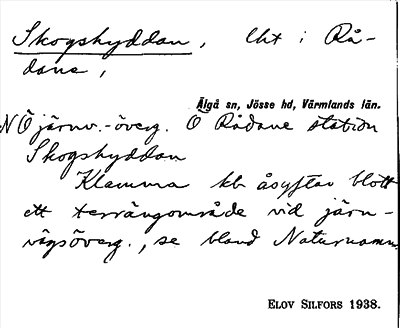 Skogshyddan, lht i Rå-
dane,
Älgå sn, Jösse hd, Värmlands län.
NÖ järnv.-överg. O Rådane station
Skogshyddan
Klamma kb åsyftar blott
ett terrängområde vid järn-
vägsöverg., se bland Naturnamn.
ELOV SILFORS 1938.